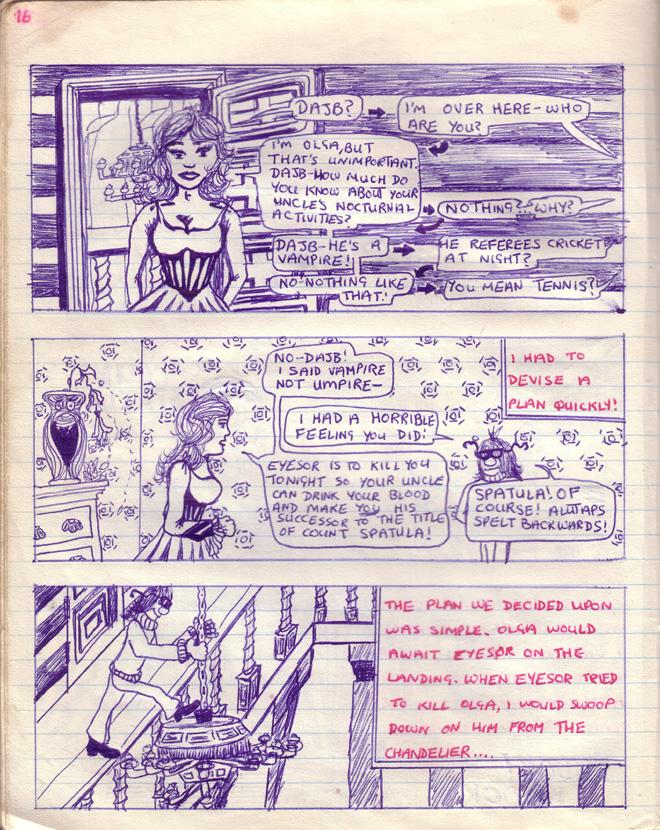 16
DAJB?
I'M OVER HERE-WHO
ARE YOU?
I'M OLGA, BUT
THAT'S UNIMPORTANT.
DAJB-HOW MUCH DO
YOU KNOW ABOUT YOUR
UNCLE'S NOCTURNAL
ACTIVITIES?
NOTHING?... WHY?
DAJB-HE'S A
VAMPIRE!
HE REFEREES CRICKET
AT NIGHT?
NO-NOTHING LIKE
THAT!
YOU MEAN TENNIS?
NO-DAJB!
I SAID VAMPIRE
NOT UMPIRE-
I HAD A HORRIBLE
FEELING YOU DID!
EYESOR IS TO KILL YOU
TONIGHT SO YOUR UNCLE
CAN DRINK YOUR BLOOD
AND MAKE YOU HIS
SUCCESSOR TO THE TITLE
OF COUNT SPATULA!
I HAD TO
DEVISE A
PLAN QUICKLY!
SPATULA! OF
COURSE! ALUTAPS
SPELT BACKWARDS!
THE PLAN WE DECIDED UPON
WAS SIMPLE. OLGA WOULD
AWAIT EYESOR ON THE
LANDING. WHEN EYESOR TRIED
TO KILL OLGA, I WOULD SWOOP
DOWN ON HIM FROM THE
CHANDELIER....